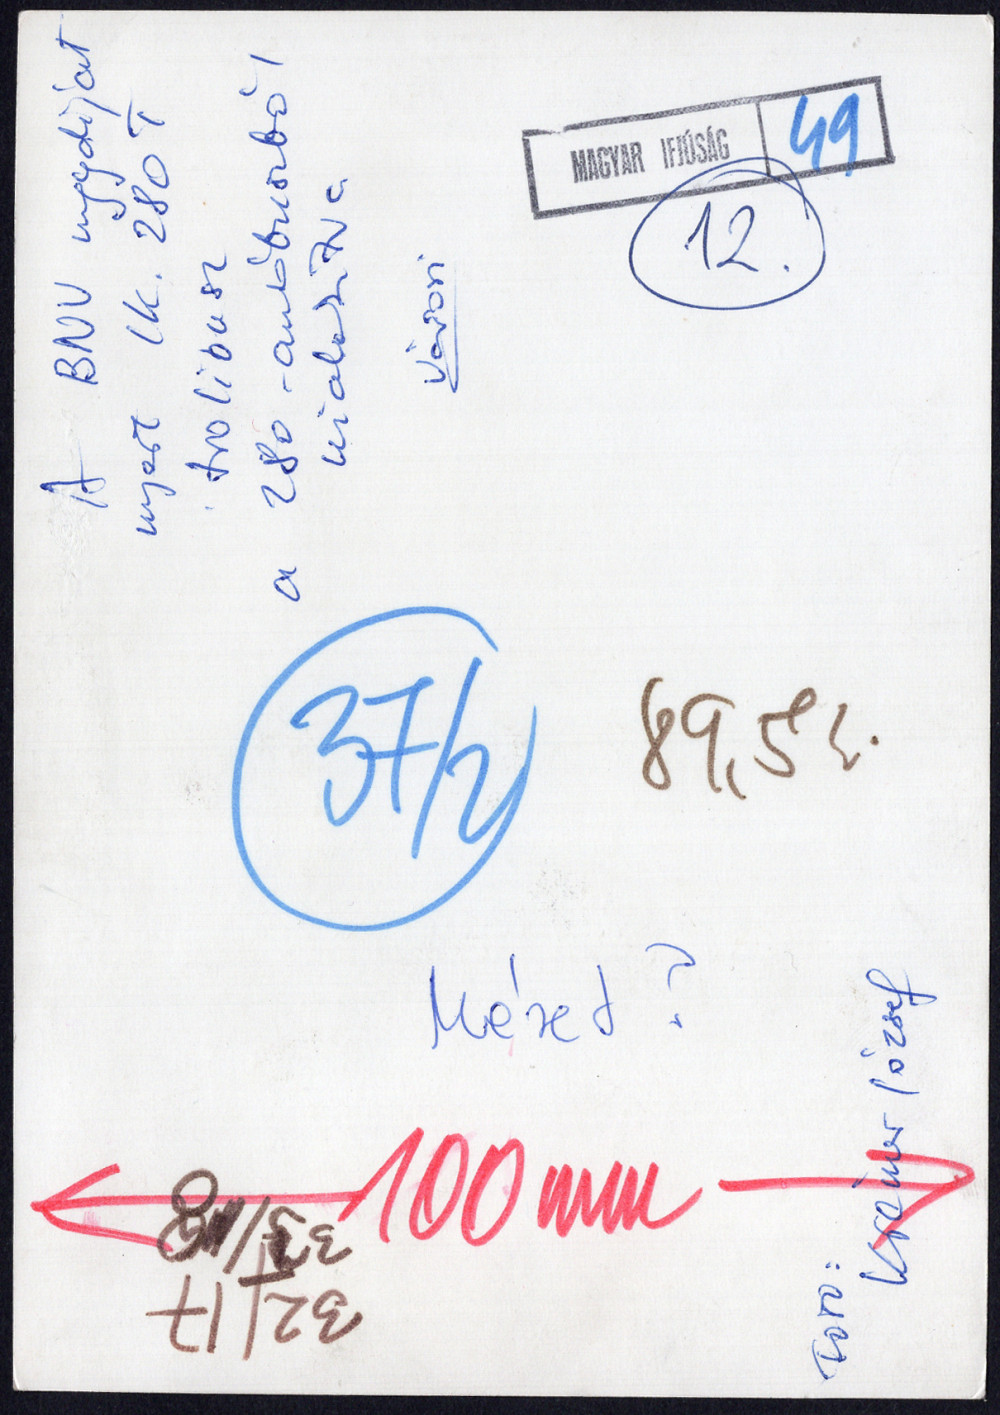 MAGYAR IFJÚSÁG 49
12.
A BNV nagydíjat
nyert IK. 280 T
trolibusz
a 280-autóbuszból
kialakítva
Városi
37/2
89,5 k.
Méret ?
100 mm
Fotó:
Krämer József
32/17